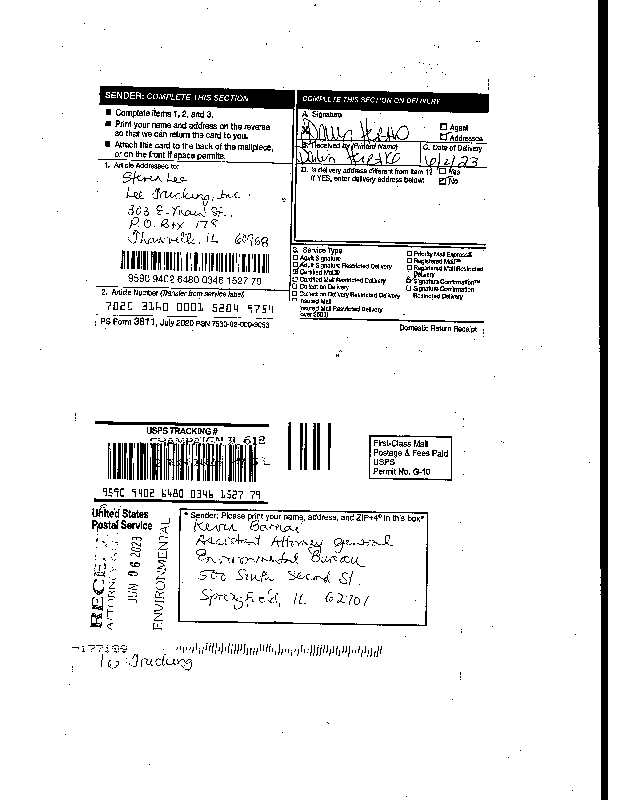 SENDER: COMPLETE THIS SECTION
■ Complete items 1, 2, and 3.
■ Print your name and address on the reverse
so that we can return the card to you.
■ Attach this card to the back of the mailpiece,
or on the front if space permits.
1. Article Addressed to:
Steven Lee
Lee Trucking, Inc.
303 E. Main St.
P.O. Box 178
Thawville, IL 60968
9590 9402 6480 0346 1527 79
2. Article Number (Transfer from service label)
7020 3160 0001 5204 9754
PS Form 3811, July 2020 PSN 7530-02-000-9053
COMPLETE THIS SECTION ON DELIVERY
A. Signature
X
☐ Agent
☐ Addressee
B. Received by (Printed Name)
C. Date of Delivery
6/2/23
D. Is delivery address different from item 1? ☐ Yes
If YES, enter delivery address below: ☑ No
3. Service Type
☐ Adult Signature
☐ Adult Signature Restricted Delivery
☒ Certified Mail®
☐ Certified Mail Restricted Delivery
☐ Collect on Delivery
☐ Collect on Delivery Restricted Delivery
☐ Insured Mail
☐ Insured Mail Restricted Delivery
(over $500)
☐ Priority Mail Express®
☐ Registered Mail™
☐ Registered Mail Restricted
Delivery
Signature Confirmation™
☐ Signature Confirmation
Restricted Delivery
Domestic Return Receipt
USPS TRACKING #
CHAMPAIGN IL 618
9590 9402 6480 0346 1527 79
First-Class Mail
Postage & Fees Paid
USPS
Permit No. G-10
United States
Postal Service
• Sender: Please print your name, address, and ZIP+4® in this box•
Assistant Attorney General
Environmental Bureau
500 South Second St.
Springfield, IL 62701
ATTORNEY
JUN 06 2023
ENVIRONMENTAL
Trucking